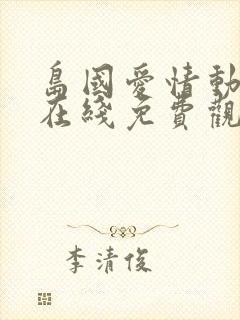 島國愛情動
在綫免費觀
李清俊